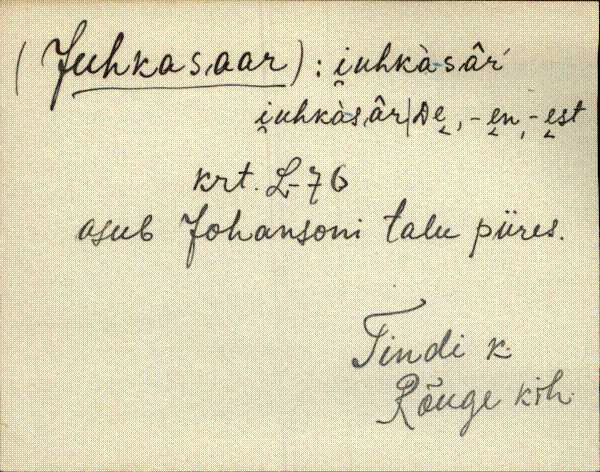 (Juhkasaar): i̯uhkàsâŕ
i̯uhkàsâr|De̮, -e̮n, -e̮st
krt. L-76
asub Johansoni talu piires.
Tindi k.
Rõuge kih.